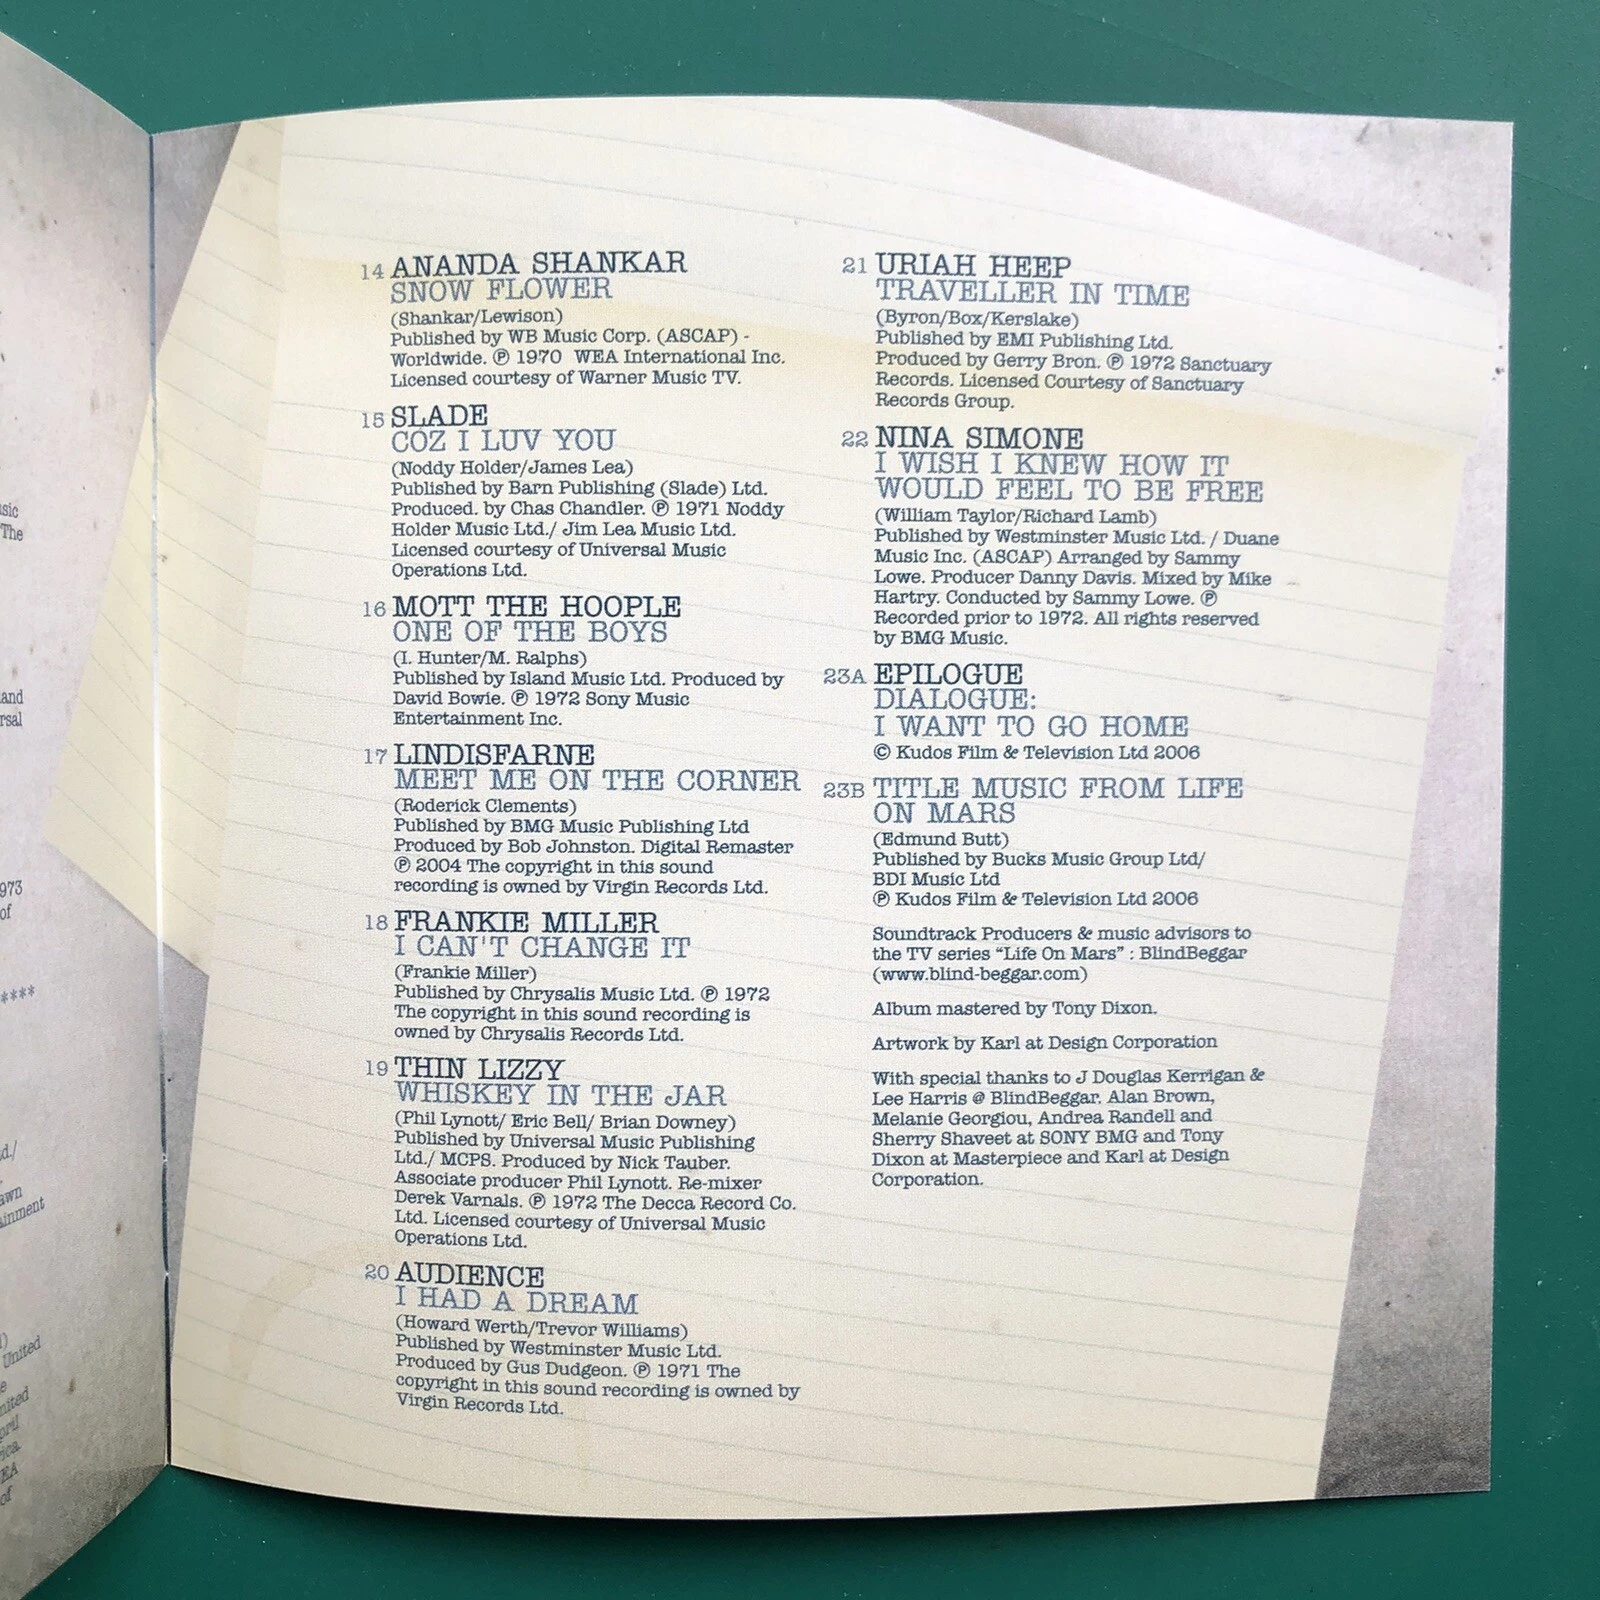 sic
The
and
rsal
973
of
****
d./
awn
ainment
United
nited
pril
rica
EA
of
14 ANANDA SHANKAR
SNOW FLOWER
(Shankar/Lewison)
Published by WB Music Corp. (ASCAP) -
Worldwide. ℗ 1970 WEA International Inc.
Licensed courtesy of Warner Music TV.
15 SLADE
COZ I LUV YOU
(Noddy Holder/James Lea)
Published by Barn Publishing (Slade) Ltd.
Produced. by Chas Chandler. ℗ 1971 Noddy
Holder Music Ltd./ Jim Lea Music Ltd.
Licensed courtesy of Universal Music
Operations Ltd.
16 MOTT THE HOOPLE
ONE OF THE BOYS
(I. Hunter/M. Ralphs)
Published by Island Music Ltd. Produced by
David Bowie. ℗ 1972 Sony Music
Entertainment Inc.
17 LINDISFARNE
MEET ME ON THE CORNER
(Roderick Clements)
Published by BMG Music Publishing Ltd
Produced by Bob Johnston. Digital Remaster
℗ 2004 The copyright in this sound
recording is owned by Virgin Records Ltd.
18 FRANKIE MILLER
I CAN'T CHANGE IT
(Frankie Miller)
Published by Chrysalis Music Ltd. ℗ 1972
The copyright in this sound recording is
owned by Chrysalis Records Ltd.
19 THIN LIZZY
WHISKEY IN THE JAR
(Phil Lynott/ Eric Bell/ Brian Downey)
Published by Universal Music Publishing
Ltd./ MCPS. Produced by Nick Tauber.
Associate producer Phil Lynott. Re-mixer
Derek Varnals. ℗ 1972 The Decca Record Co.
Ltd. Licensed courtesy of Universal Music
Operations Ltd.
20 AUDIENCE
I HAD A DREAM
(Howard Werth/Trevor Williams)
Published by Westminster Music Ltd.
Produced by Gus Dudgeon. ℗ 1971 The
copyright in this sound recording is owned by
Virgin Records Ltd.
21 URIAH HEEP
TRAVELLER IN TIME
(Byron/Box/Kerslake)
Published by EMI Publishing Ltd.
Produced by Gerry Bron. ℗ 1972 Sanctuary
Records. Licensed Courtesy of Sanctuary
Records Group.
22 NINA SIMONE
I WISH I KNEW HOW IT
WOULD FEEL TO BE FREE
(William Taylor/Richard Lamb)
Published by Westminster Music Ltd. / Duane
Music Inc. (ASCAP) Arranged by Sammy
Lowe. Producer Danny Davis. Mixed by Mike
Hartry. Conducted by Sammy Lowe. ℗
Recorded prior to 1972. All rights reserved
by BMG Music.
23A EPILOGUE
DIALOGUE:
I WANT TO GO HOME
© Kudos Film & Television Ltd 2006
23B TITLE MUSIC FROM LIFE
ON MARS
(Edmund Butt)
Published by Bucks Music Group Ltd/
BDI Music Ltd
℗ Kudos Film & Television Ltd 2006
Soundtrack Producers & music advisors to
the TV series “Life On Mars” : BlindBeggar
(www.blind-beggar.com)
Album mastered by Tony Dixon.
Artwork by Karl at Design Corporation
With special thanks to J Douglas Kerrigan &
Lee Harris @ BlindBeggar. Alan Brown,
Melanie Georgiou, Andrea Randell and
Sherry Shaveet at SONY BMG and Tony
Dixon at Masterpiece and Karl at Design
Corporation.